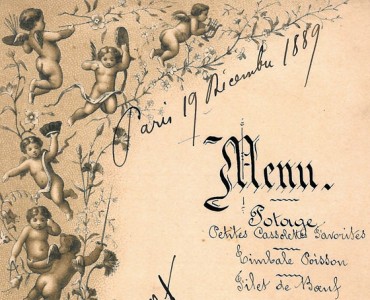 Paris 19 Décembre 1889
Menu.
Potage
Petites Cassolettes Favorites
Timbale Poisson
Filet de Bœuf